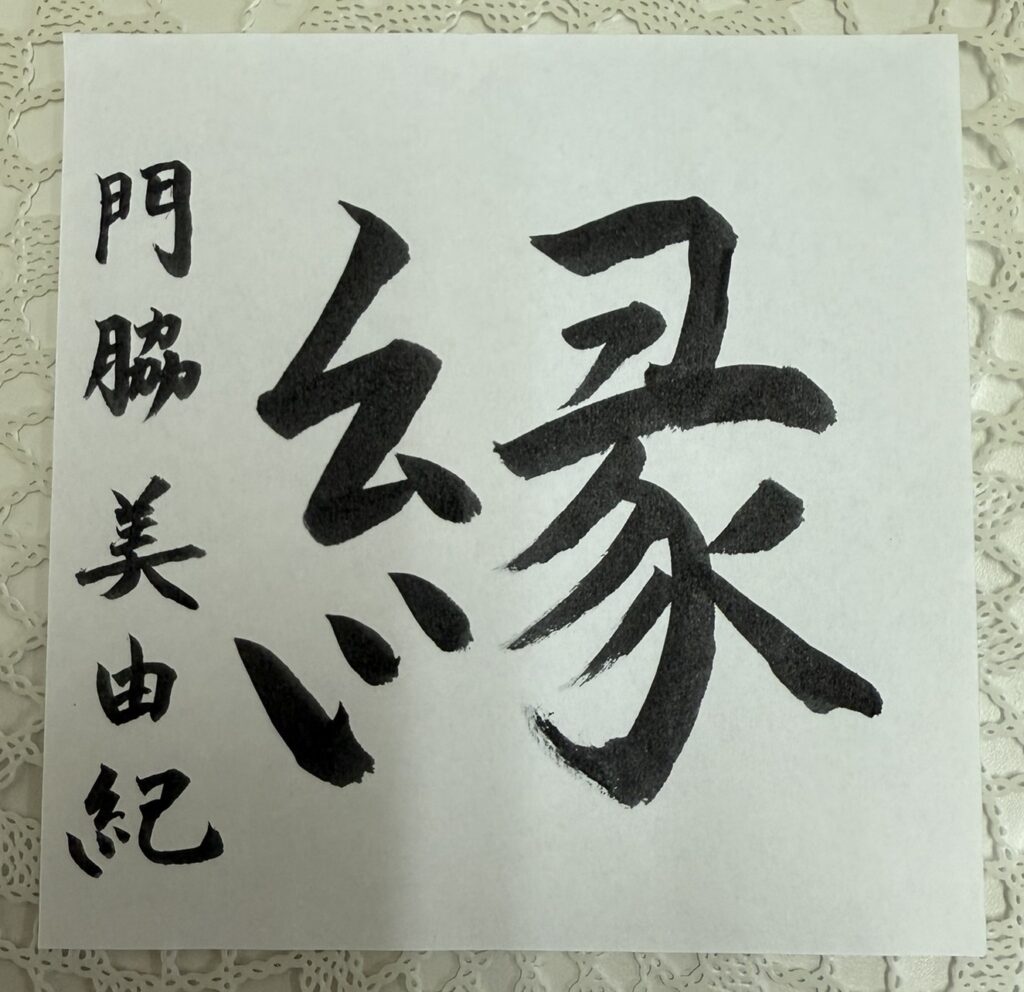 縁
門脇美由紀